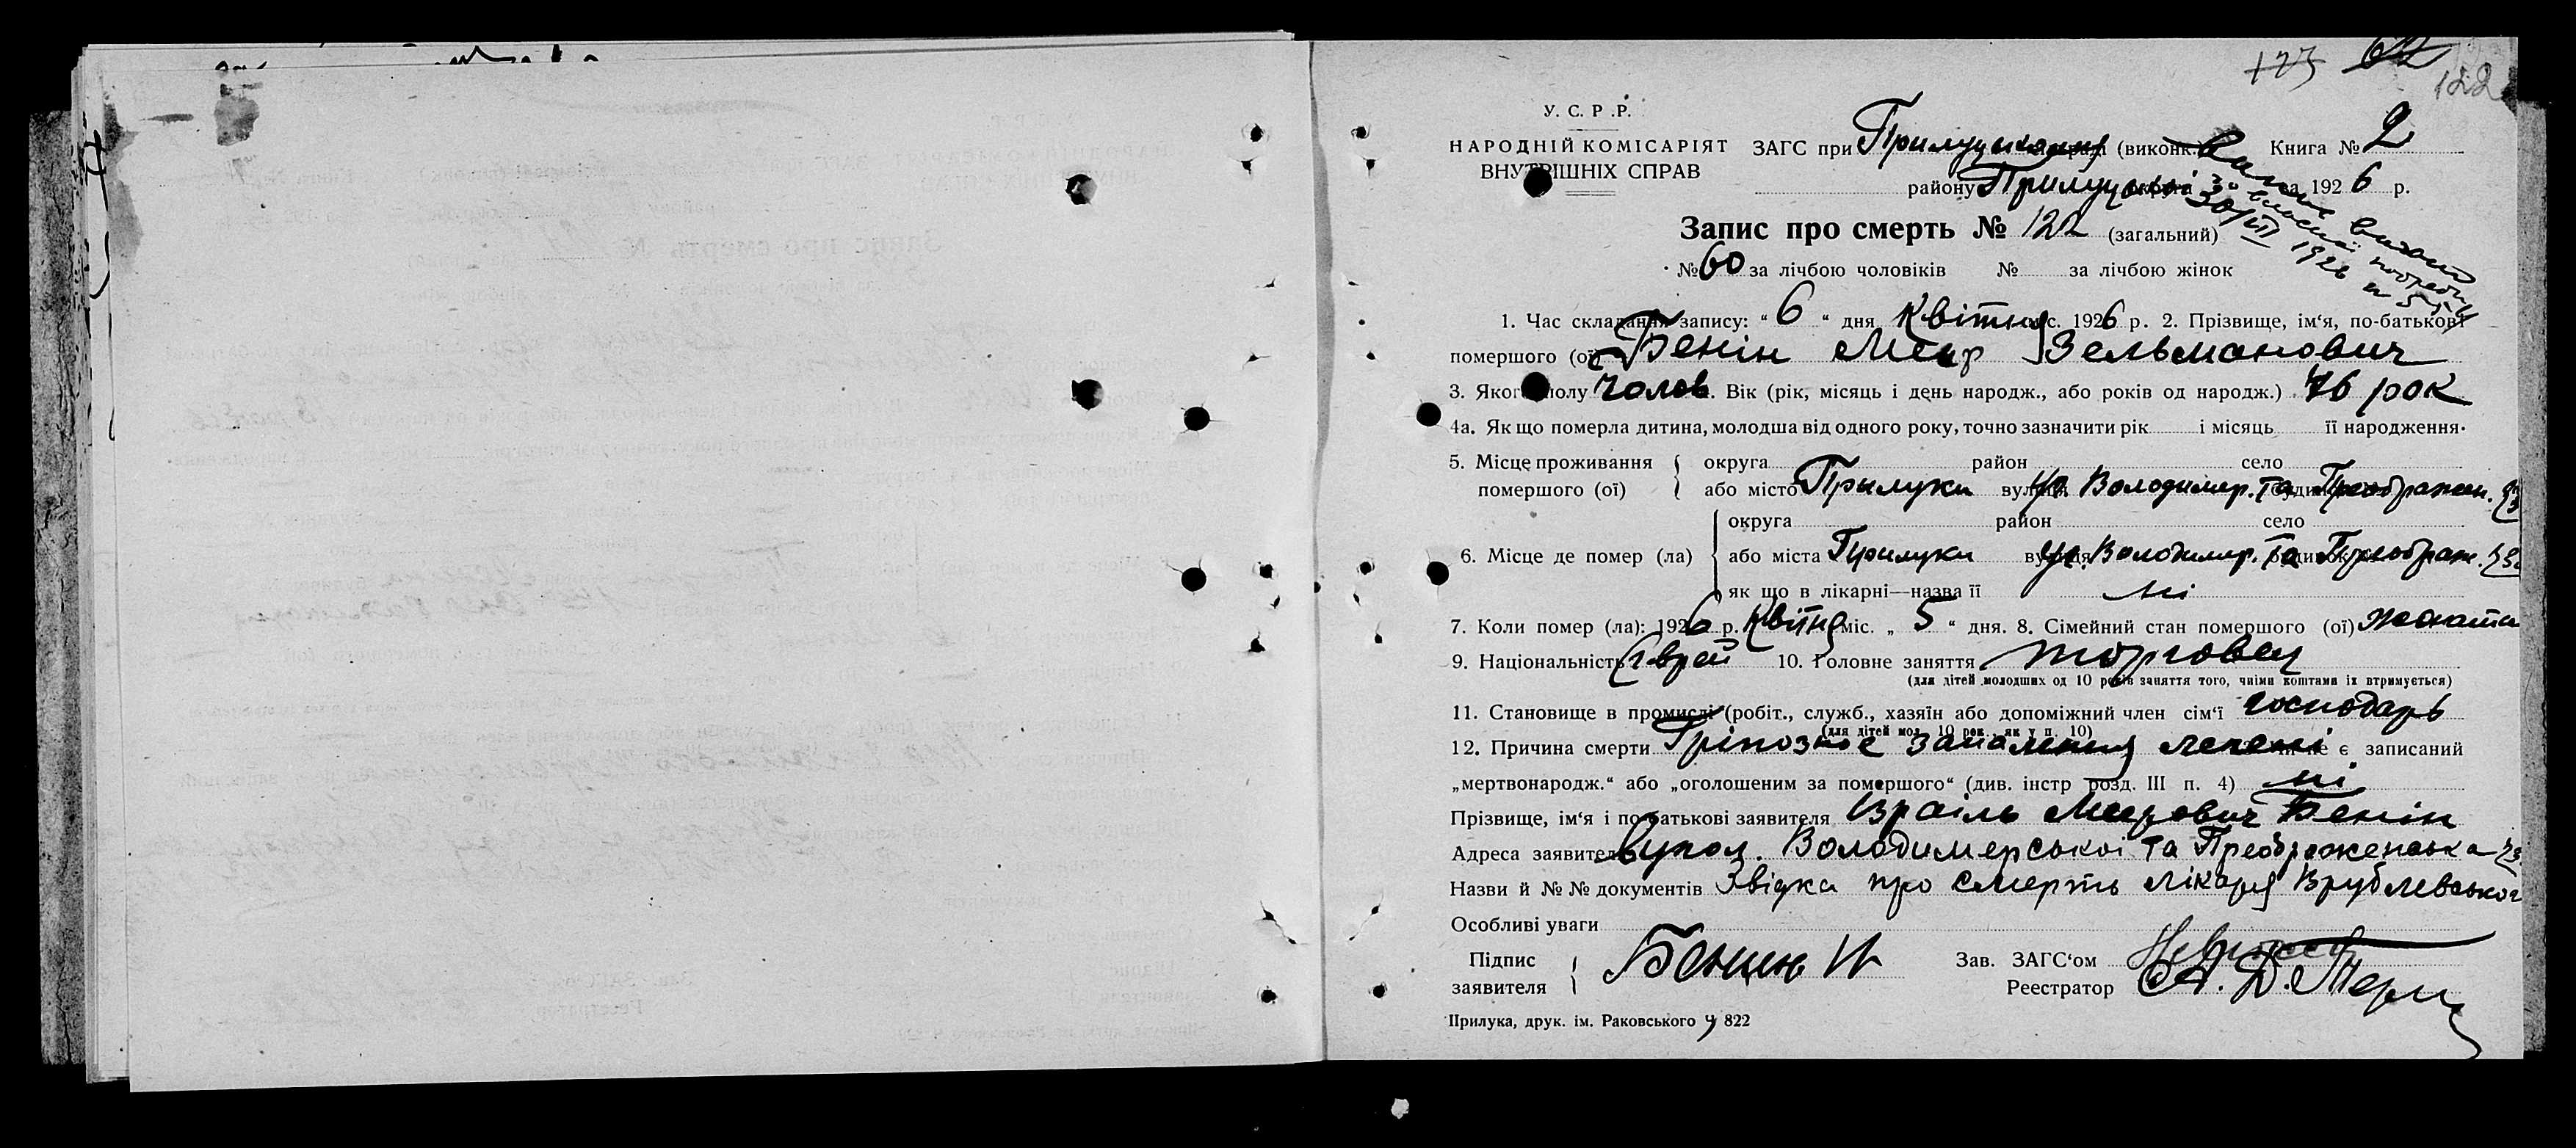 173 122
У. С. Р. Р.
НАРОДНІЙ КОМІСАРІЯТ ВНУТРІШНІХ СПРАВ
ЗАГС при (виконк.) Книга № 2
району Прилуцької за 1926 р.
30/VII 1926
Запис про смерть № 122 (загальний)
№ 60 за лічбою чоловіків № за лічбою жінок
1. Час складання запису: “ 6 “ дня Квітня міс. 1926 р. 2. Прізвище, ім‘я, по-батькові
помершого (ої) Бенін Меер Зельманович
3. Якого полу Чолов. Вік (рік, місяць і день народж., або років од народж.) 76 рок
4а. Як що померла дитина, молодша від одного року, точно зазначити рік і місяць її народження.
5. Місце проживання помершого (ої) округа район село
або місто Прилуки вулиця Володимир. та Преображен.
6. Місце де помер (ла) округа район село
або міста Прилуки вулиця Володимир. та Преображ.
як що в лікарні—назва її ні
7. Коли помер (ла): 1926 р. Квітня міс. „ 5 “ дня. 8. Сімейний стан помершого (ої)
9. Національність Єврей 10. Головне заняття торговец
(для дітей молодших од 10 років заняття того, чиїми коштами їх втримується)
11. Становище в промислі (робіт., служб., хазяїн або допоміжний член сім‘ї господарь
(для дітей мол. 10 рок., як у п. 10)
12. Причина смерти Гріпозноє запалення легені чи не є записаний
„мертвонародж.“ або „оголошеним за помершого“ (див. інстр розд. III п. 4) ні
Прізвище, ім‘я і по батькові заявителя Ізраіль Меерович Бенін
Адреса заявителя Володимерської та Преображенська
Назви й №№ документів Звідка про смерть лікаря Врублевського
Особливі уваги
Підпис заявителя Бенин И
Зав. ЗАГС‘ом
Реестратор
Прилука, друк. ім. Раковського 822